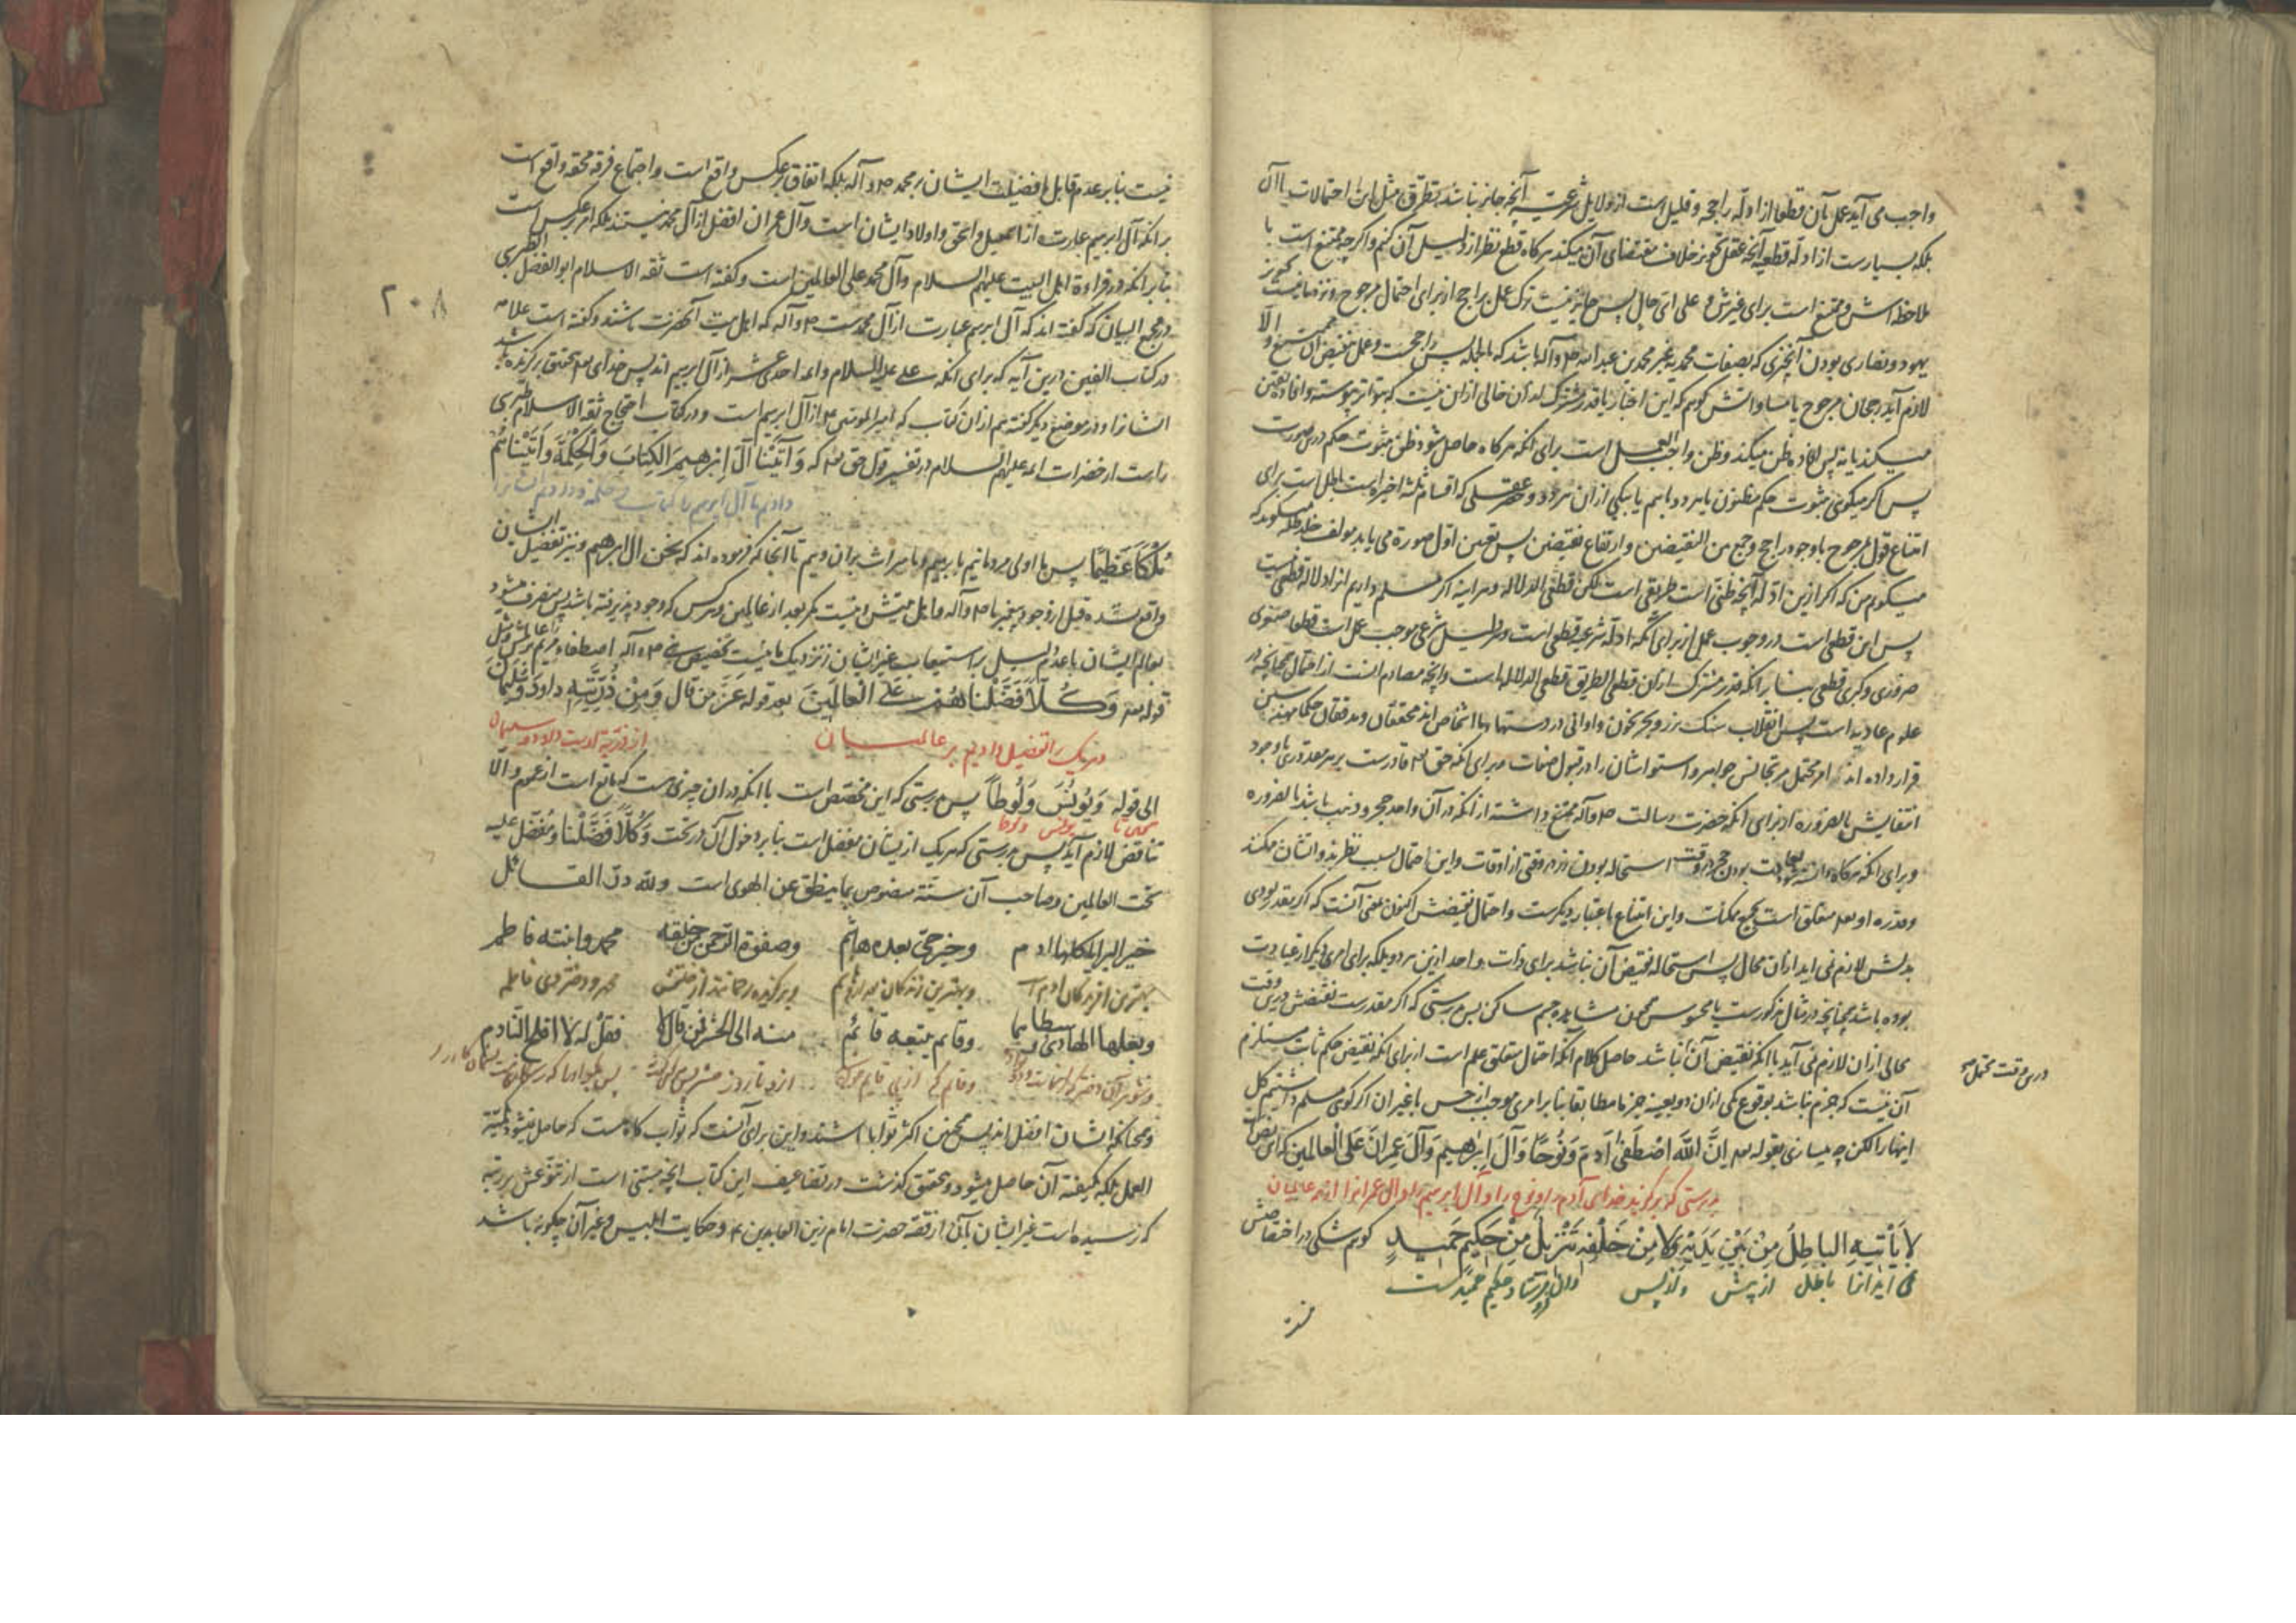 واجب می آید عمل بآن قطعا از ادله راجحه و قلیل است از دلایل شرعیه آنچه جایز نباشد تطرق مثل این احتمالات باآن
بلکه بسیارست از ادله قطعیه آنچه عقل تجویز خلاف مقتضای آن میکند هرکاه قطع نظر از دلیل آن کنم واکرچه ممتنع است با
ملاحظه اش و ممتنع است برای غیرش و علی ای حال پس جایز نیست ترک عمل براجح از برای احتمال مرجوح و نزد ما نیست تجویز
یهود و نصاری بودن آنچیزی که بصفات محمدیه غیر محمد بن عبدالله ص وآله باشد که بالجمله پس راجحست وعمل بنقیض آن ممتنع والا
لازم آید رجحان مرجوح یا مساواتش کویم که این اخبار یا قدر مشترک از آن خالی از ان نیست که بتواتر پیوسته وافاده یقین
میکند یا نه پس افاده ظن میکند وظن واجب العمل است برای آنکه هرکاه حاصل شود ظن بثبوت حکم درین صورت
پس اکر میکوئی بثبوت حکم مظنون یا هر دو باهم یا بیکی ازان هردو وحصر عقلی که اقسام ثلثه اخیره است باطل است برای
امتناع قول بمرجوح با وجود راجح وجمع بین النقیضین وارتفاع نقیضین پس تعین اول صورة می یابد مولف حفظه میکوید که
میکویم من که اکر ازین ادله آنچه ظنی است طریقی است لکن قطعی الدلاله وهرآینه اکر مسلم داریم از ادلاله قطعی نیست
پس این قطعی است در وجوب عمل از برای آنکه ادله شرعیه قطعی است وهر دلیل شرعی موجب عمل است قطعا صغری
ضروری وکبری قطعی بنا برانکه قدر مشترک از آن قطعی الطریق قطعی الدلاله است وآنچه مصادم آنست از احتمال همچنانچه در
علوم عادیه است پس انقلاب سنک بزر وبحر بخون واوانی در دستها باشخاص اند محققان ومدققان حکما مهندسین
قرار داده اند امر محتمل بر تجانس جواهر واستوا شان در قبول صفات وبرای آنکه حق تعه قادرست بر هر مقدوری با وجود
انتفایش بالضروره از برای آنکه حضرت رسالت ص وآله ممتنع داشته از آنکه در آن واحد حجر و ذهب باشد بالضروره
وبرای آنکه هرکاه دانسته شود بعادت بودن حجر در وقت استحاله بودن زر در وقتی از اوقات واین احتمال بسبب نظر بذوات شان ممکنند
وقدره او تعه متعلق است بجمیع ممکنات واین امتناع باعتبار دیکرست واحتمال نقیضش اکنون بمعنی آنست که اکر بقدر بودی
بدلش لازم نمی اید ازان محال پس استحاله نقیض آن نباشد برای ذات واحد ازین هر دو بلکه برای امری دیکر از عیادت
بوده باشد همچنانچه در مثال مذکورست یا محسوس همچون مشاهده جسم ساکن پس بدرستی که اکر مقدرست نقیضش درین وقت
محالی ازان لازم نمی آید با آنکه نقیض آن نباشد حاصل کلام آنکه احتمال متعلق علم است از برای آنکه نقیض حکم ثابت مستلزم
درین وقت محتمل صح
آن نیست که جزم نباشد بوقوع یکی ازان دو بعینه جزما مطابقا بنا بر امری موجب از حس یا غیر ان اکر کوی مسلم داشتیم کل
اینها را لکن چه میسازی بقوله تعه اِنَّ اللّٰهَ اصْطَفٰى اٰدَمَ وَنُوحًا وَاٰلَ اِبْرٰهِيمَ وَاٰلَ عِمْرٰانَ عَلَى الْعالَمينَ که این نص
بدرستی که برکزید خدای آدم را ونوح را وآل ابرهیم را وآل عمرانرا از همه عالمیان
لا يَأْتيهِ الباطِلُ مِنْ بَيْنِ يَدَيْهِ وَلا مِنْ خَلْفِهِ تَنْزيلٌ مِنْ حَكيمٍ حَميدٍ کویم شکی در اختصاصش
نمی اید انرا باطل از پیش و از پس وآن فرستاد حکیم حمیدست
نیست بنا بر عدم قابل بافضلیت ایشان بر محمد ص وآله بلکه اتفاق بر عکس واقع است واجتماع فرقه محقه واقع است
برانکه آل ابرهیم عبارت از اسمعیل واسحق واولاد ایشان است وآل عمران افضل از آل محمد نیستند بلکه امر بر عکس است
بنا بر آنکه در قراءة اهل البیت علیهم السلام وآل محمد علی العالمین است وکفته است ثقه الاسلام ابو الفضل الطبرسی
در مجمع البیان که کفته اند که آل ابرهیم عبارت از آل محمدست ص وآله که اهل بیت آنحضرت باشند وکفته است علامه
۲۰۸
در کتاب الفین درین آیه که برای آنکه علی علیه السلام وائمه احدی عشر از آل ابرهیم اند پس خدای تعه بتحقیق برکزیده باشد
ایشانرا ودر موضع دیکر کفته هم ازان کتاب که امیر المومنین ع از آل ابرهیم است ودر کتاب احتجاج ثقه الاسلام طبرسی
راست از حضرات ائمه علیهم السلام در تفسیر قول حق تعه که وَآتَيْنا آلَ اِبْرٰهيمَ الْكِتابَ وَالْحِكْمَةَ وَآتَيْناهُمْ
دادیم ما آل ابرهیم را کتاب وحکمة ودادیم ایشانرا
مُلْكًا عَظيمًا پس ما اولی مردمانیم بابرهیم وما میراث بران ویم تا آنجا که فرموده اند که نحن ال ابرهیم ونیز تفضیل ایشان
واقع شده قبل از وجود پیغمبر ما ص وآله واهل بیتش ونیست مکر بعد از عالمین وهر کس که وجود پذیرفته باشد پس منصرف میشود
بعالم ایشان با عدم السبیل بر استیعاب غیر ایشان ز نزدیک ما نیست تخصیص نبی ص وآله اصطفاء مریم بر نساء عالمش ومثل
قوله تعه وَكُلًّا فَضَّلْناهُمْ عَلَى الْعالَمينَ بعد قوله عَزَّ مَن قال وَمِنْ ذُرِّيَّتِهِ داوُدَ وَسُلَيْمانَ
وهر یک را تفضیل دادیم بر عالمیان از ذریه اوست داود وسلیمان
الی قوله وَيُونُسَ وَلُوطًا پس بدرستی که این مختص است با آنکه در ان چیزی ست که مانع است از عموم والا
یونس ولوط
تناقض لازم آید پس بدرستی که هریک ازیشان مفضل است بنا بر دخول آن در تحت وَكُلًّا فَضَّلْنا ومفضل علیه
تحت العالمین وصاحب آن سنه منصوص بما ینطق عن الهوی است ولله در القائل
خیر البرایا کلها ادم وخیر حی بعده هاشم وصفوة الرحمن من خلقه محمد وابنته فاطم
بهترین افریدکان ادم است وبهترین زندکان بعد از هاشم وبرکزیده رحمانند از خلقش محمد ودختر وی فاطمه
وبعلها الهادی وسبطاهما وقائم یتبعه قائم منه الی الحشر فمن قال لا فقل له لا افلح النادم
وشوهر آن دختر وقائم که از پی قائم از و تا روز حشر پس هرکه کفت نه پس بکو او را که رستکار مباد
ومحاکه ایشان افضل اند پس همچنین اکثر ثوابا باشند واین برای آنست که ثواب کاه هست که حاصل نمیشود بکمیة
العمل بلکه بکیفیته آن حاصل میشود وتحقیق کذشت در تضاعیف این کتاب آنچه مبتنی است از تنوعش بر رتبه
که نرسیده است غیر ایشان بآن از قصه حضرت امام زین العابدین ع وحکایت ابلیس وغیر آن چکونه باشد